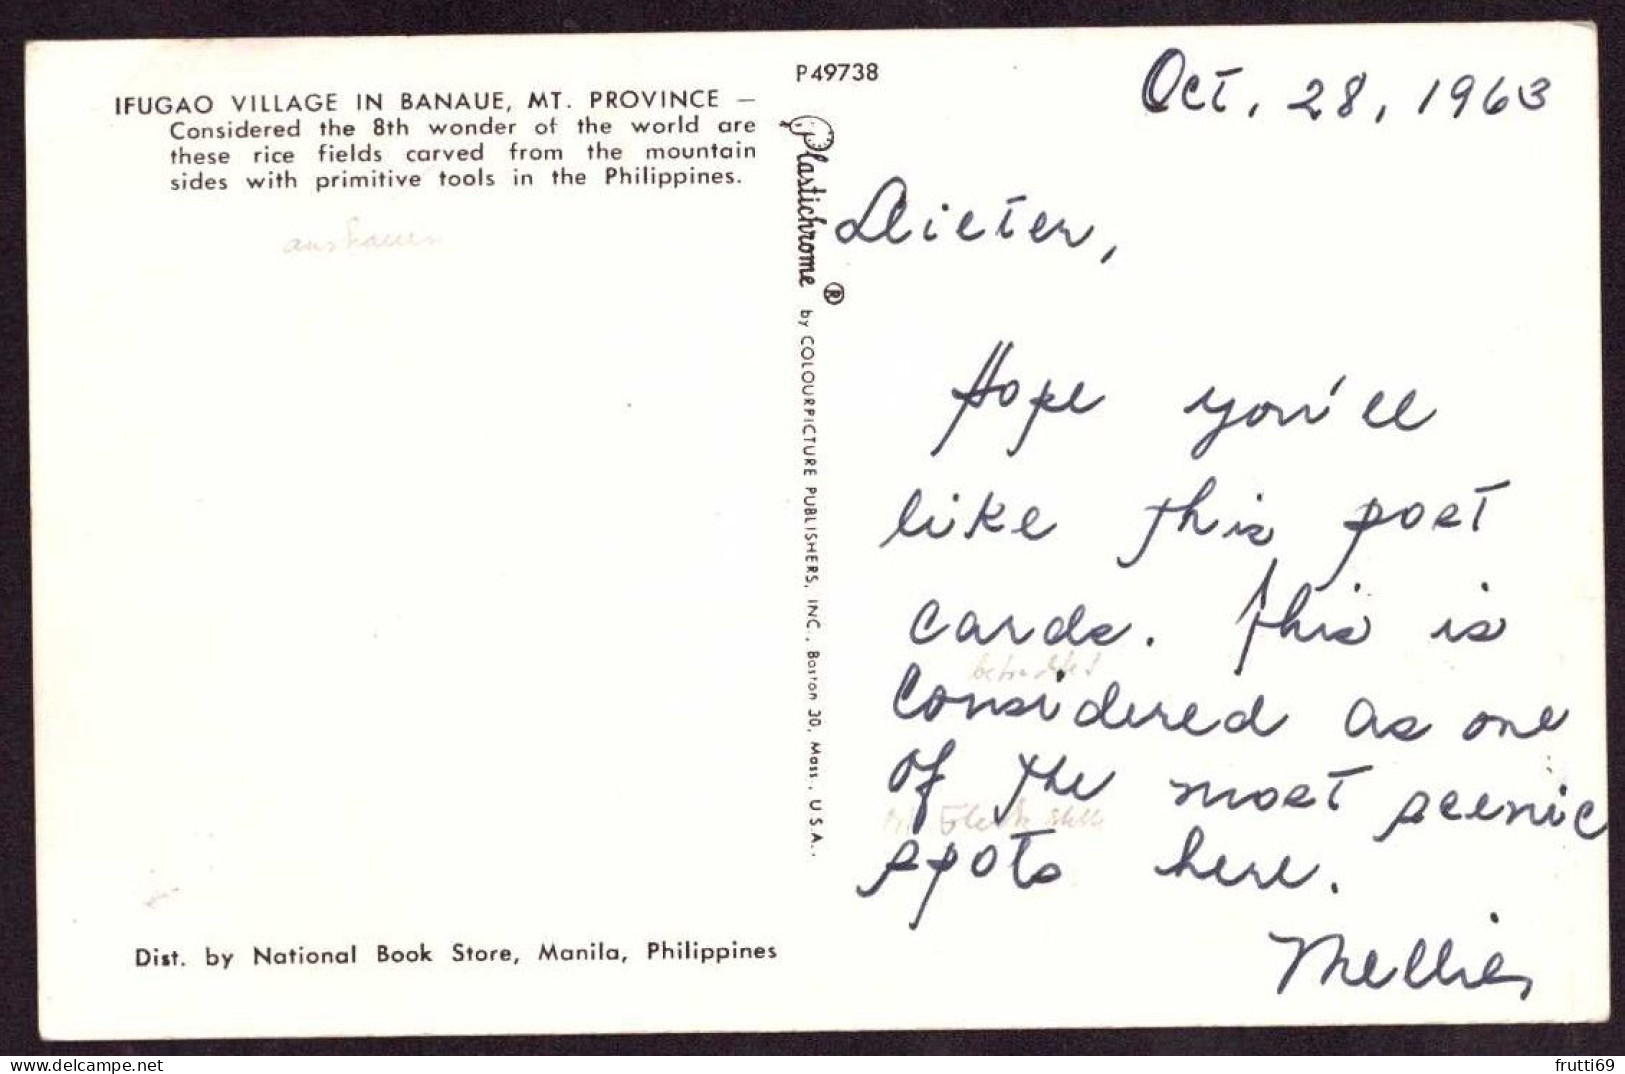 IFUGAO VILLAGE IN BANAUE, MT. PROVINCE —
Considered the 8th wonder of the world are
these rice fields carved from the mountain
sides with primitive tools in the Philippines.
aushauen
Dist. by National Book Store, Manila, Philippines
P49738
Plastichrome ® by COLOURPICTURE PUBLISHERS, INC., Boston 30, Mass., U.S.A.,
Oct, 28, 1963
Dieter,
Hope you'll
like this post
cards. This is
betrachtet
considered as one
of the most scenic
Fleck
spots here.
Mellie,
www.delcampe.net
frutti69